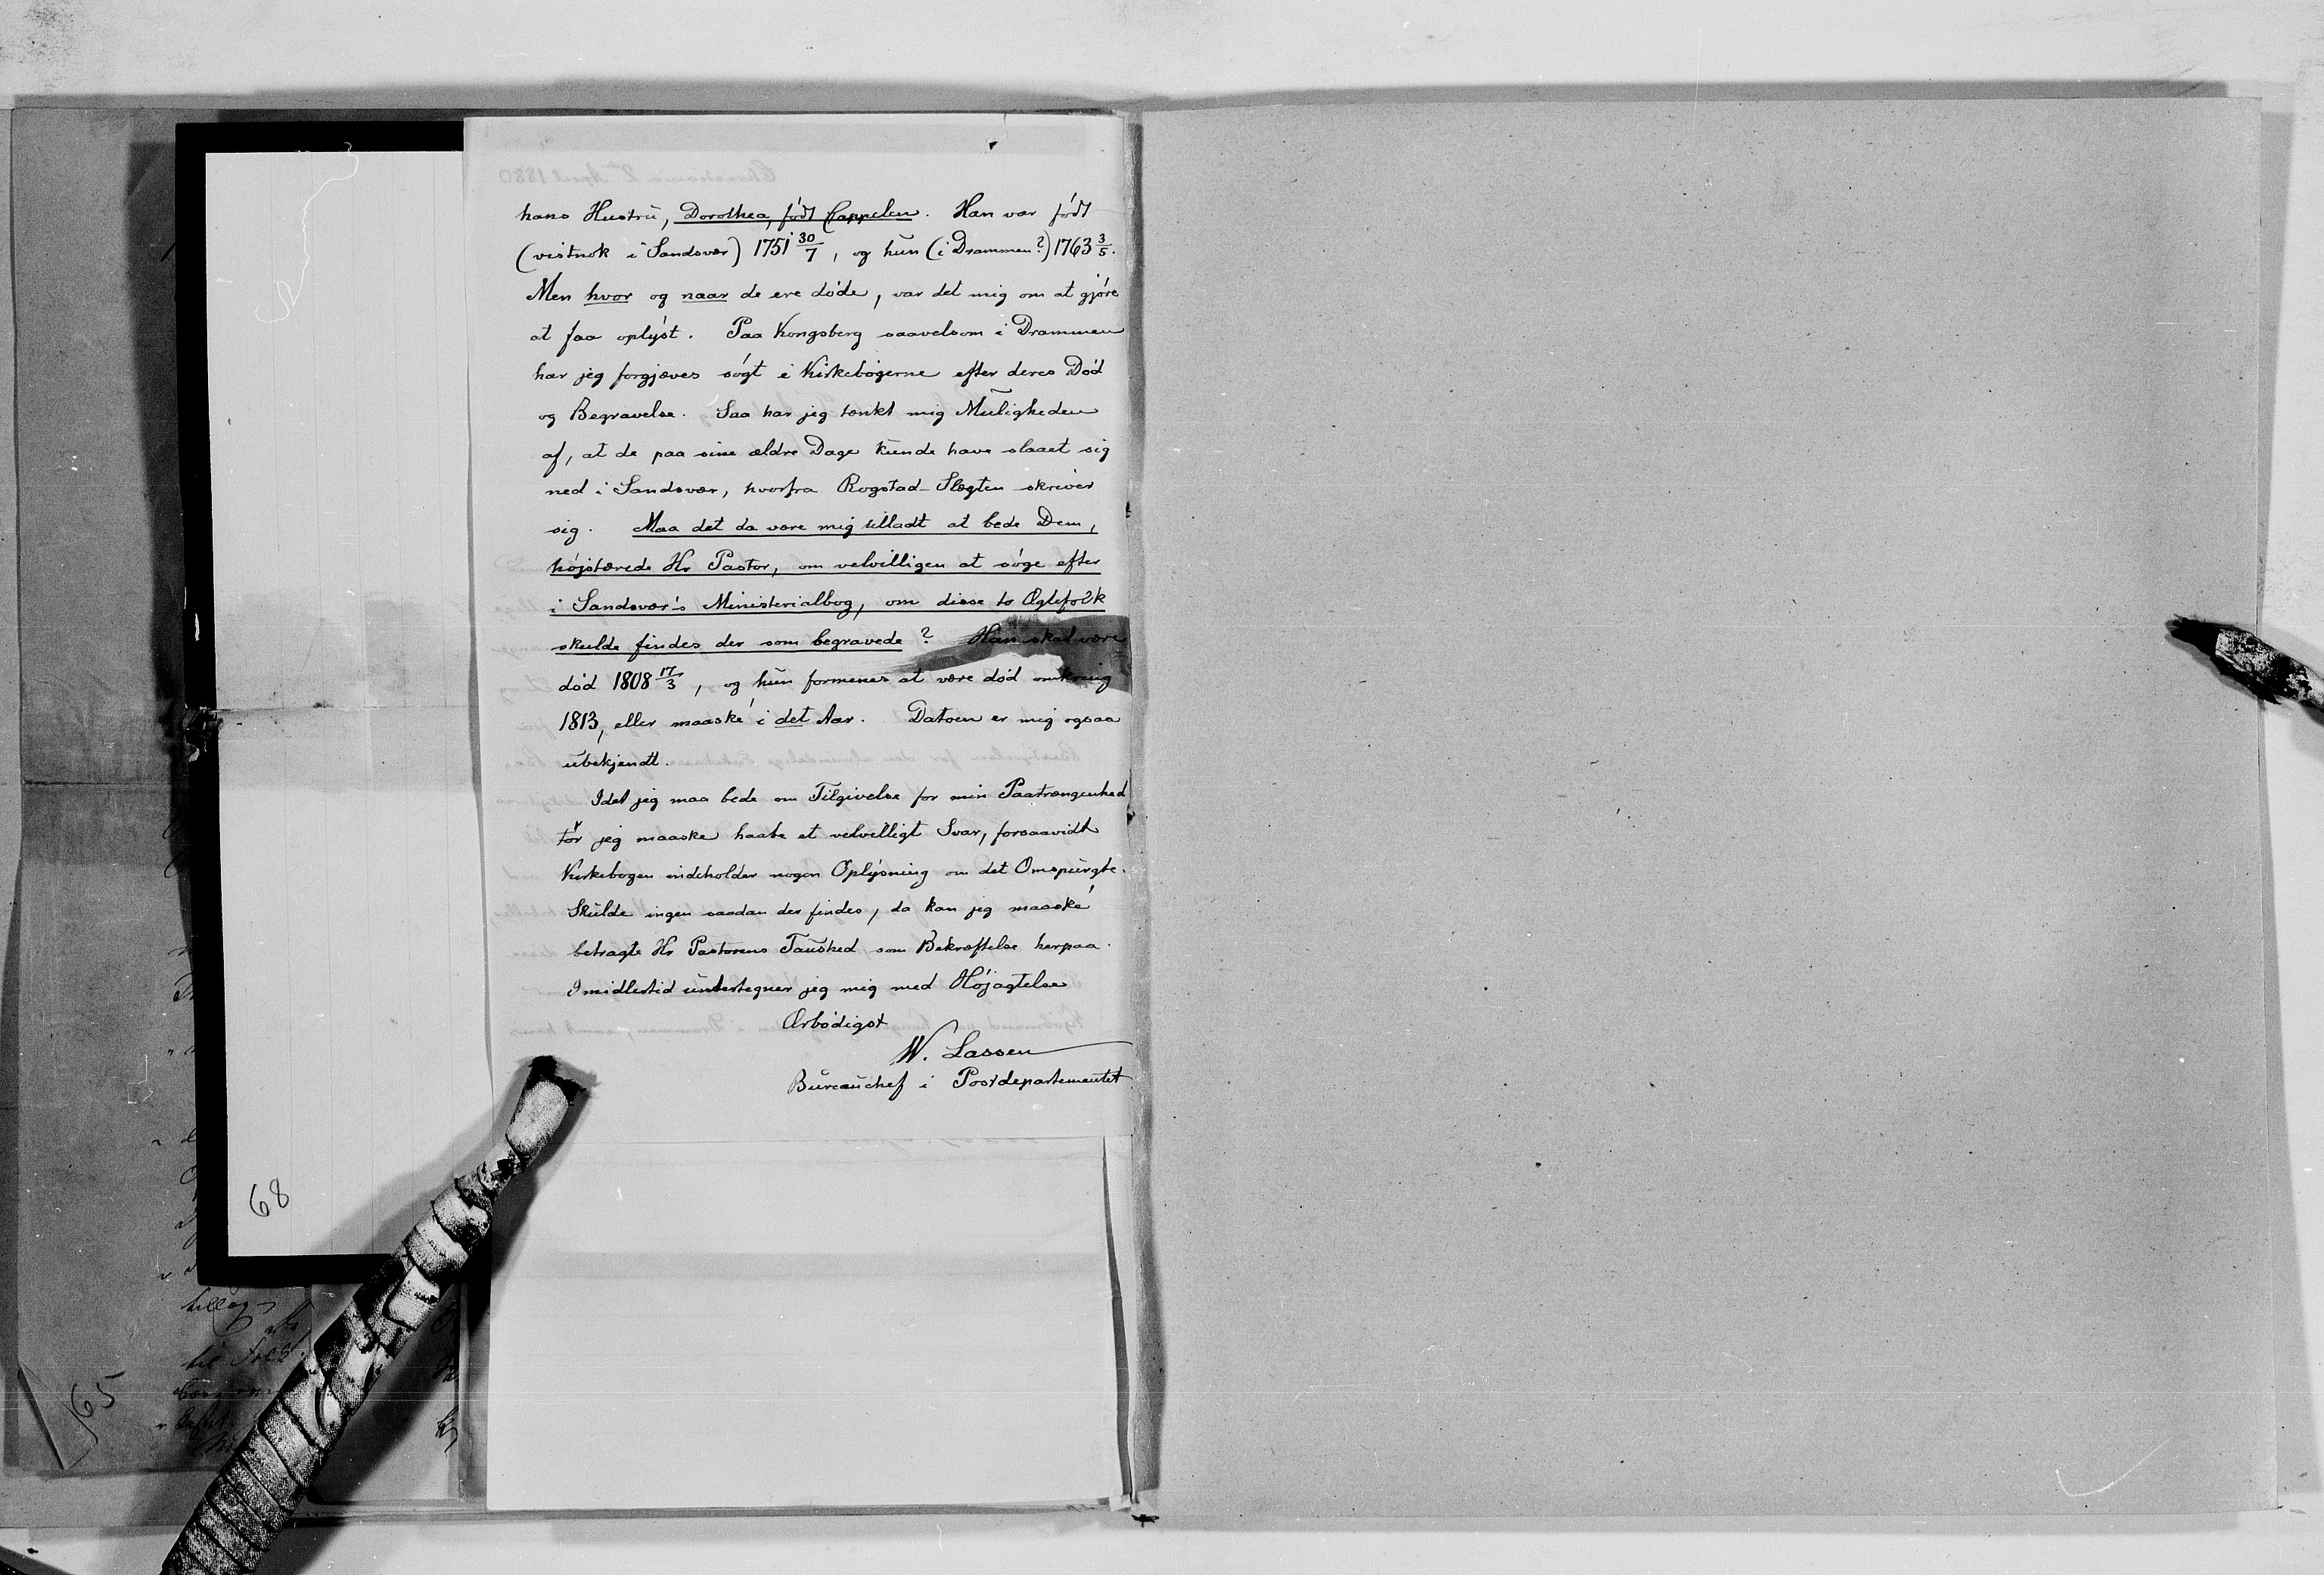 hans Hustrü, Dorothea, födt Cappelen. Han var födt
(vistnok i Sandsvær) 1751 30/7, og hün (i Drammen?) 1763 3/5.
Men hvor og naar de ere döde, var det mig om at gjöre
at faa oplyst. Paa Kongsberg saavelsom i Drammen
har jeg forgjæves sögt i Kirkebögerne efter deres Död
og Begravelse. Saa har jeg tænkt mig Müligheden
af, at de paa sine ældre Dage künde have slaaet sig
ned i Sandsvær, hvorfra Rogstad-Slægten skriver
sig. Maa det da være mig tilladt at bede Dem,
höjstærede Hr Pastor, om velvilligen at söge efter
i Sandsvær's Ministerialbog, om disse to Ægtefolk
skulde findes der som begravede? Han skal være
död 1808 17/3, og hün formenes at være död omkring
1813, eller maaské i det Aar. Datoen er mig ogsaa
übekjendt.
Idet jeg maa bede om Tilgivelse for min Paatrængenhed
tör jeg maaske haabe et velvilligt Svar, forsaavidt
Kirkebogen indeholder nogen Oplysning om det Omspürgte.
Skülde ingen saadan der findes, da kan jeg maaské
betragte Hr Pastorens Taüshed som Bekræftelse herpaa.
Imidlertid ündertegner jeg mig med Höjagtelse
Ærbödigst
W. Lassen
Büreaüchef i Postdepartementet
68
165